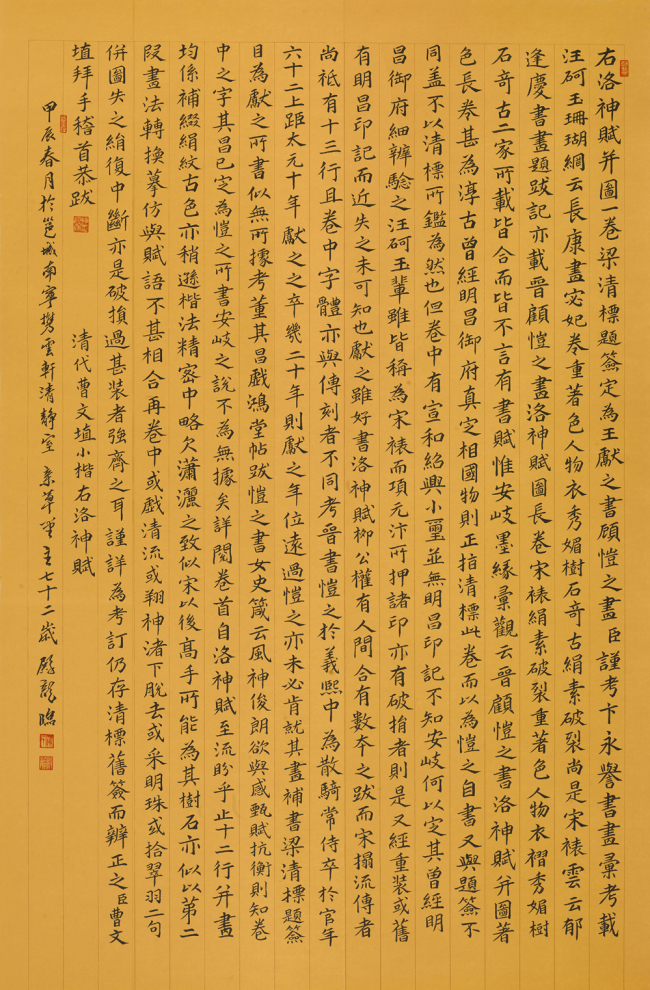 右洛神賦并圖一卷梁清標題簽定為王獻之書顧愷之畫臣謹考卞永譽書畫彙考載
汪砢玉珊瑚網云長康畫宓妃卷重著色人物衣秀媚樹石奇古絹素破裂尚是宋裱雲云郁
逢慶書畫題跋記亦載晉顧愷之畫洛神賦圖長卷宋裱絹素破裂重著色人物衣褶秀媚樹
石奇古二家所載皆合而皆不言有書賦惟安岐墨緣彙觀云晉顧愷之書洛神賦并圖著
色長卷甚為淳古曾經明昌御府真定相國物則正指清標此卷而以為愷之自書又與題簽不
同盖不以清標所鑑為然也但卷中有宣和紹興小璽並無明昌印記不知安岐何以定其曾經明
昌御府細辨驗之汪砢玉輩雖皆稱為宋裱而項元汴所押諸印亦有破損者則是又經重装或舊
有明昌印記而近失之未可知也獻之雖好書洛神賦柳公權有人間合有數本之跋而宋搨流傳者
尚袛有十三行且卷中字體亦與傳刻者不同考晉書愷之於義熙中為散騎常侍卒於官年
六十二上距太元十年獻之之卒幾二十年則獻之年位遠過愷之亦未必肯就其畫補書梁清標題簽
目為獻之所書似無所據考董其昌戲鴻堂帖跋愷之書女史箴云風神俊朗欲與感甄賦抗衡則知卷
中之字其昌已定為愷之所書安岐之說不為無據矣詳閱卷首自洛神賦至流盼乎止十二行并畫
均係補綴絹紋古色亦稍遜楷法精密中略欠瀟灑之致似宋以後高手所能為其樹石亦似以第二
段畫法轉換摹仿與賦語不甚相合再卷中或戲清流或翔神渚下脫去或采明珠或拾翠羽二句
併圖失之絹復中斷亦是破損過甚装者強齊之耳謹詳為考訂仍存清標舊簽而辨正之臣曹文
埴拜手稽首恭跋　清代曹文埴小楷右洛神賦
甲辰春月於邕城南寧攬雲軒清靜室　草堂主七十二歲　龍臨